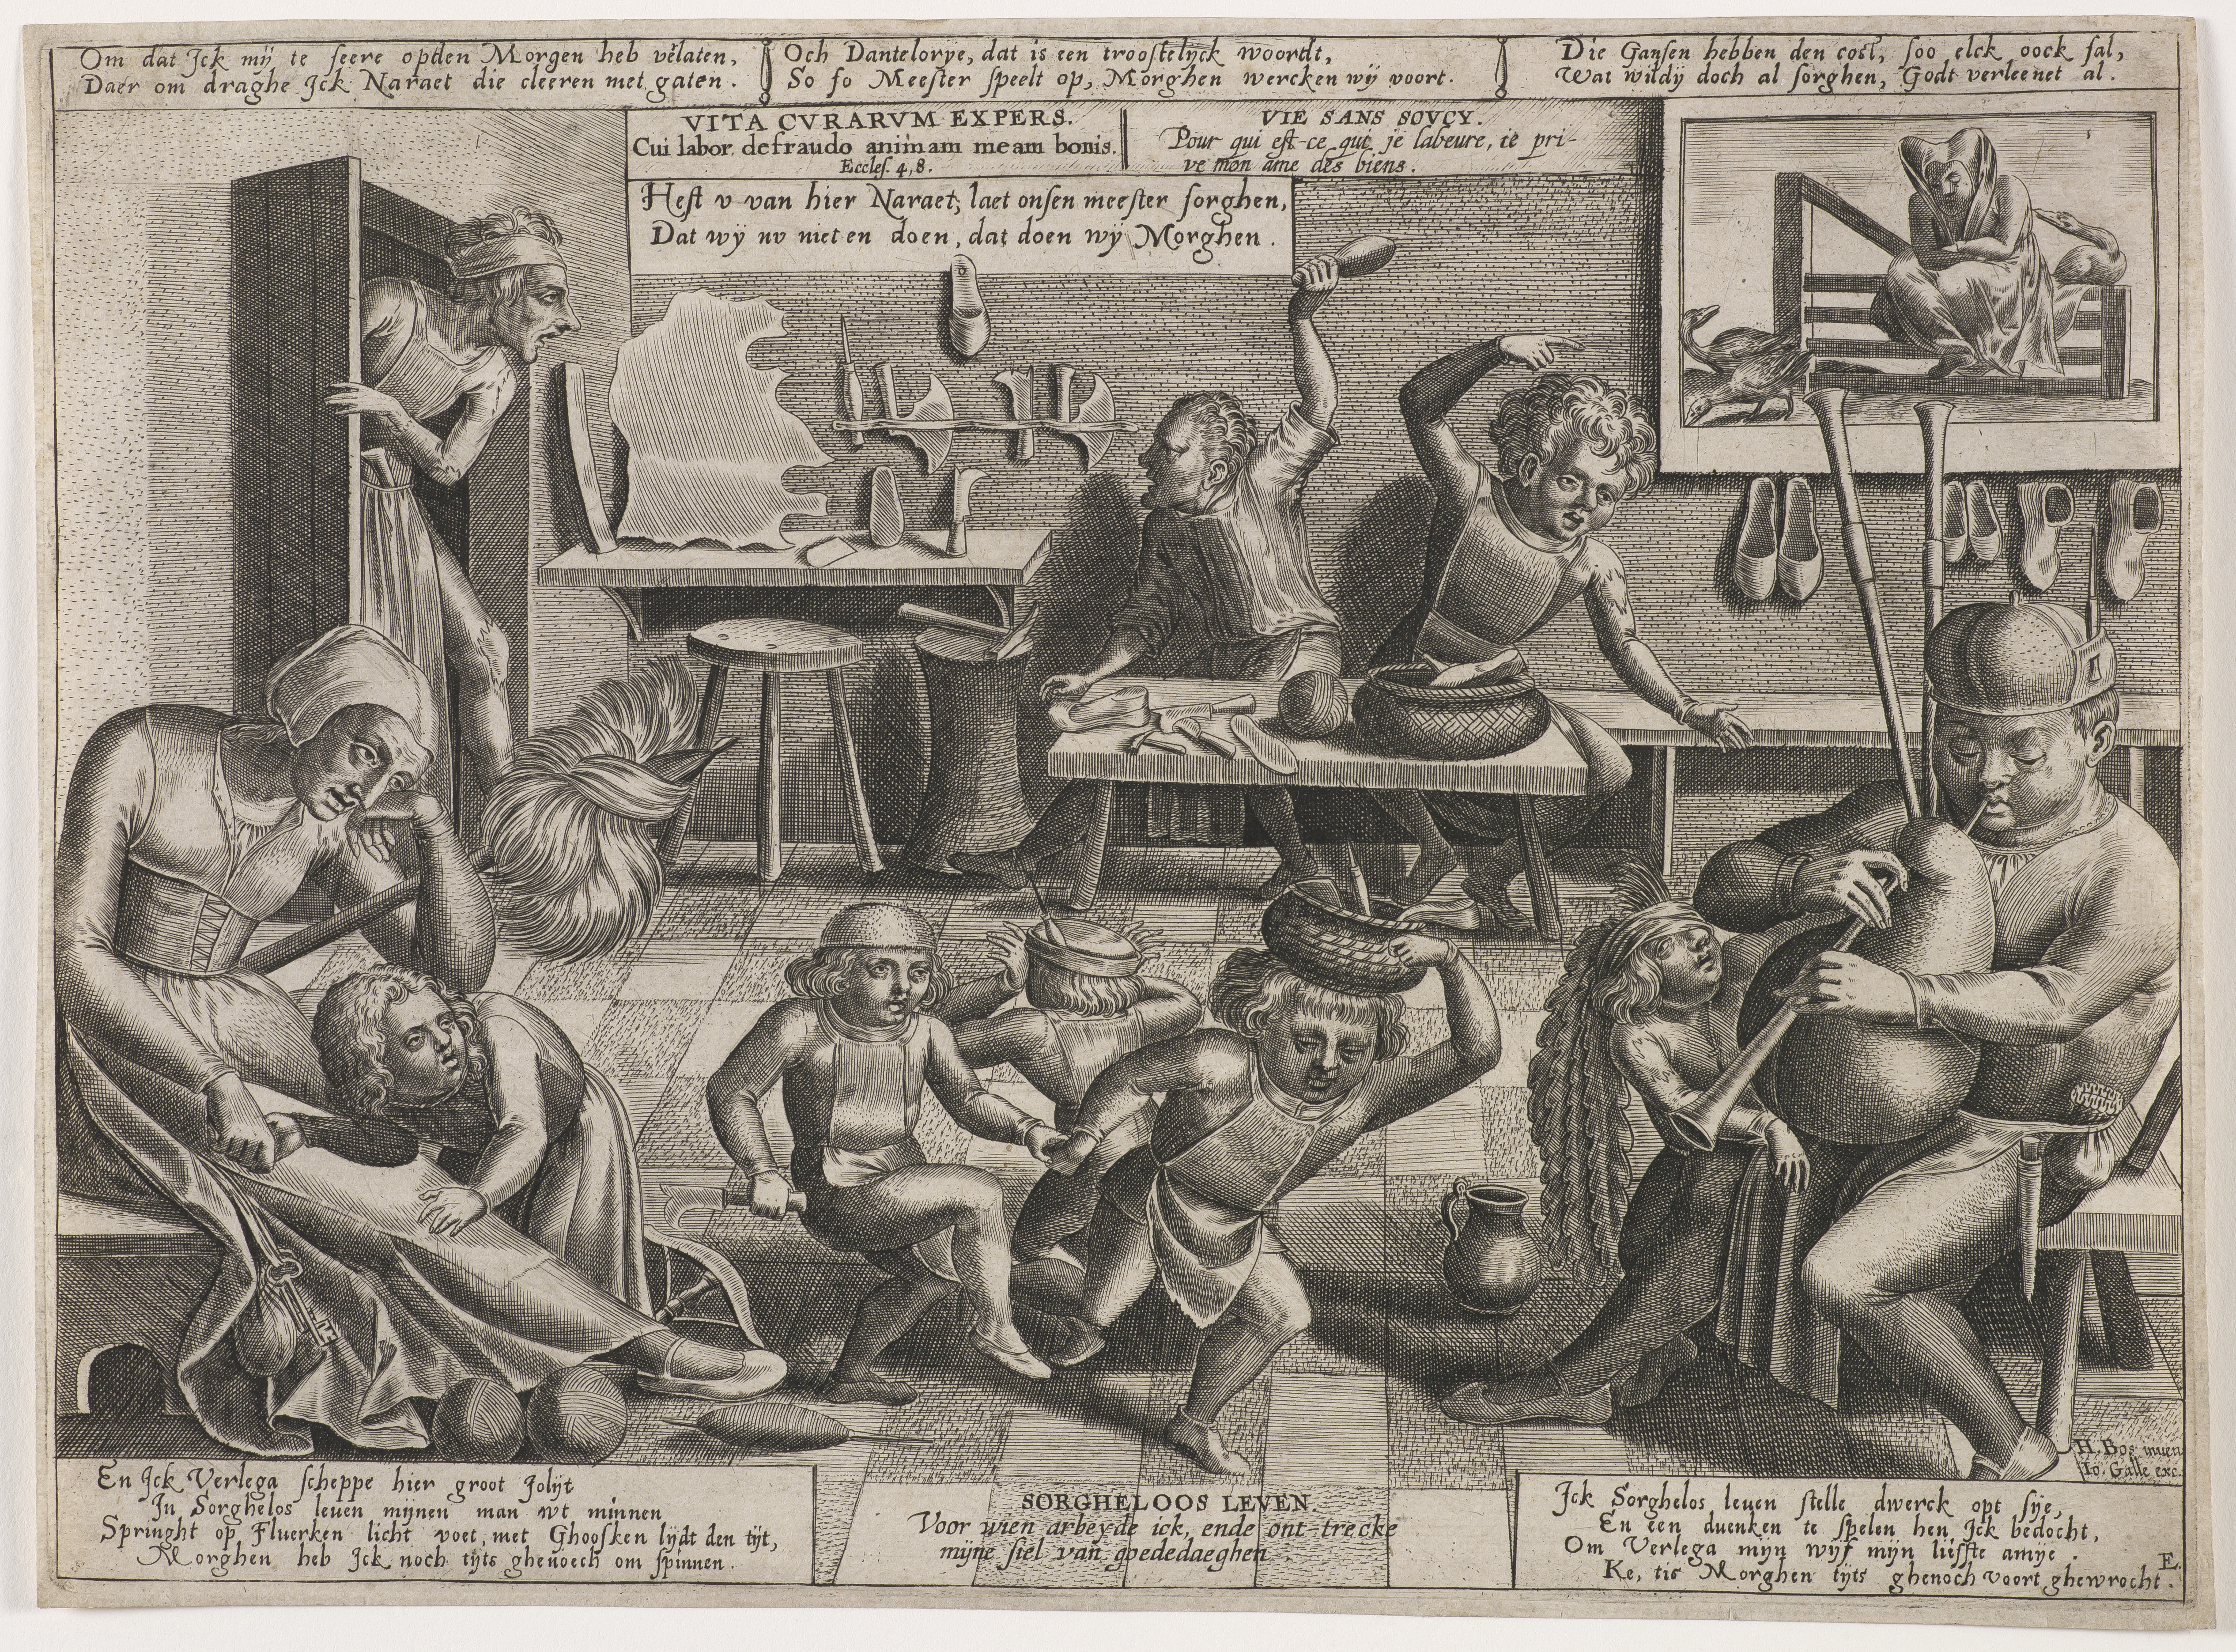 Om dat Ick mij te seere opden Morgen heb vělaten,
Daer om draghe Ick Naraet die cleeren met gaten.
Och Dantelorye, dat is een troostelijck woordt,
So so Meester speelt op, Morghen wercken wij voort.
Die Gansen hebben den cost, soo elck oock sal,
Wat wildij doch al sorghen, Godt verleenet al.
VITA CVRARVM EXPERS.
Cui labor, defraudo animam meam bonis.
Eccles. 4, 8.
VIE SANS SOVCY.
Pour qui est-ce qui je labeure, ie pri-
ve mon ame des biens.
Hest v van hier Naraet, laet onsen meester sorghen,
Dat wij nv niet en doen, dat doen wij Morghen.
H. Bos. inuen
Io. Galle exc.
En Ick Verlega scheppe hier groot Jolijt
In Sorghelos leuen mijnen man wt minnen
Springht op Fluerken licht voet, met Ghoosken lijdt den tijt,
Morghen heb Ick noch tijts ghenoech om spinnen.
SORGHELOOS LEVEN.
Voor wien arbeyde ick, ende ont-trecke
mijne siel van goededaeghen.
Ick Sorghelos leuen stelle dwerck opt sije,
En een duenken te spelen hen Ick bedocht,
Om Verlega mijn wijf mijn liefste amije.
Ke, tis Morghen tijts ghenoch voort ghewrocht.
E.